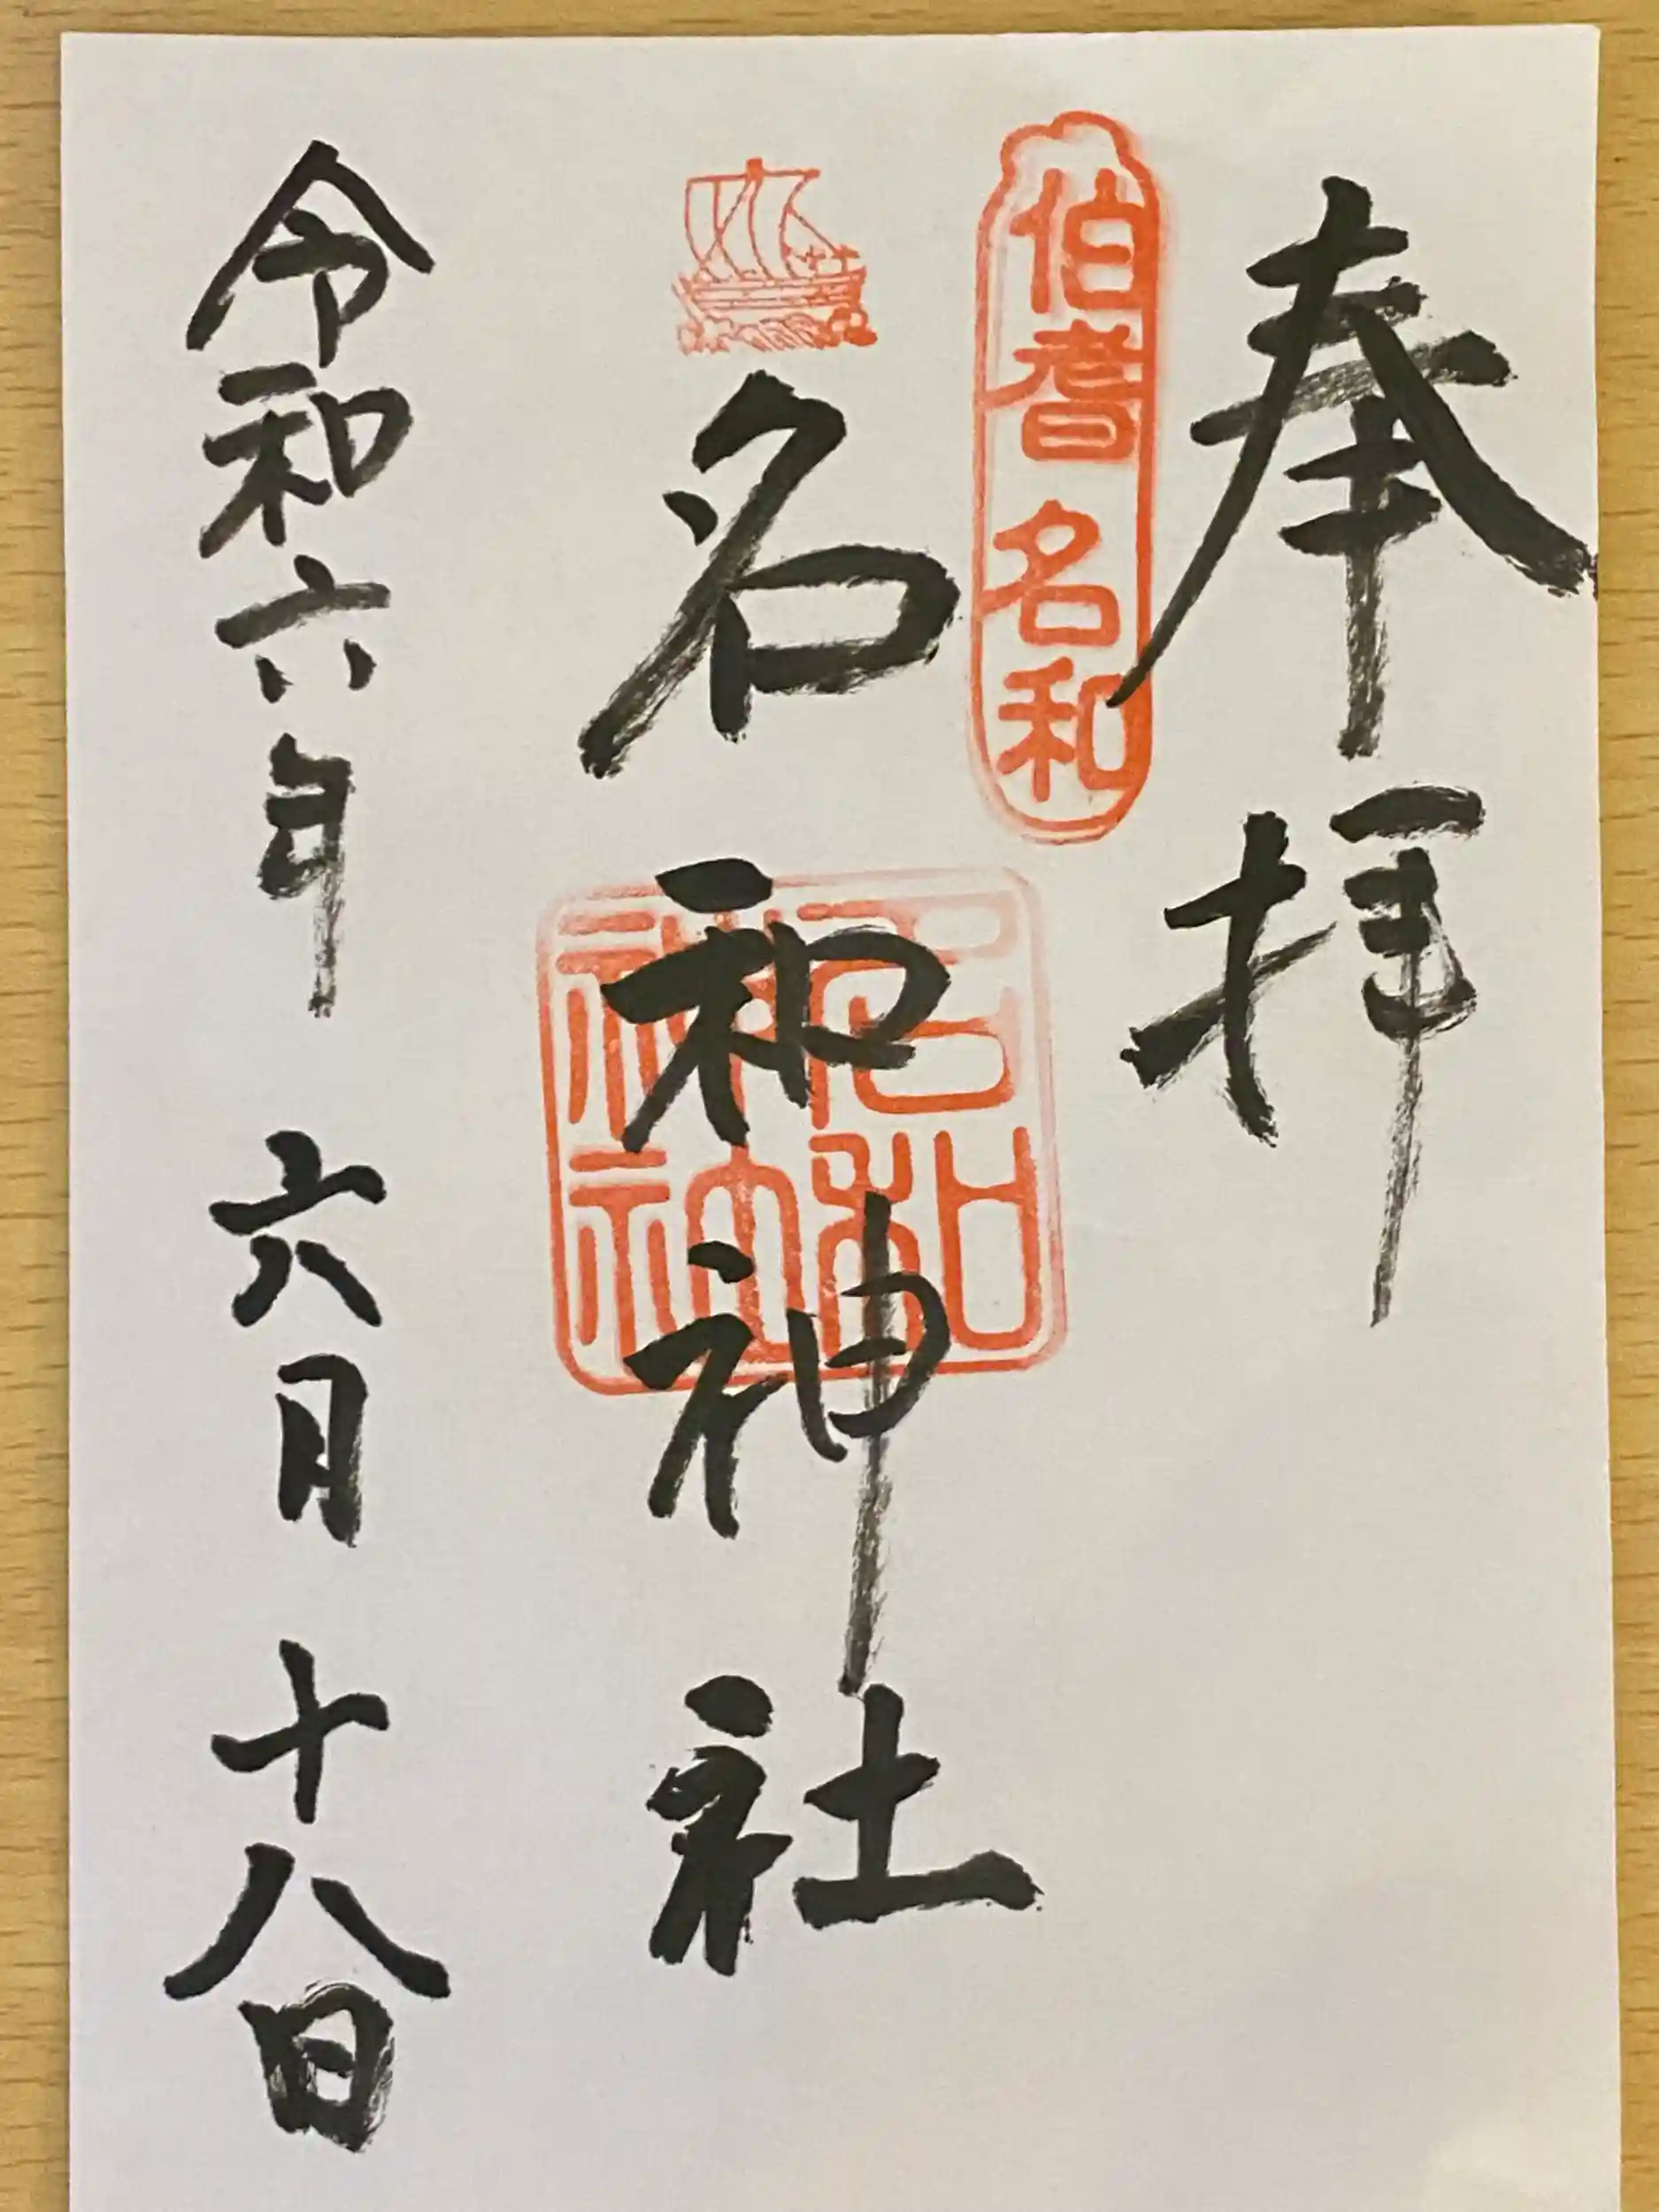 奉拝
伯耆名和
名和神社
名和神社
令和六年 六月 十八日